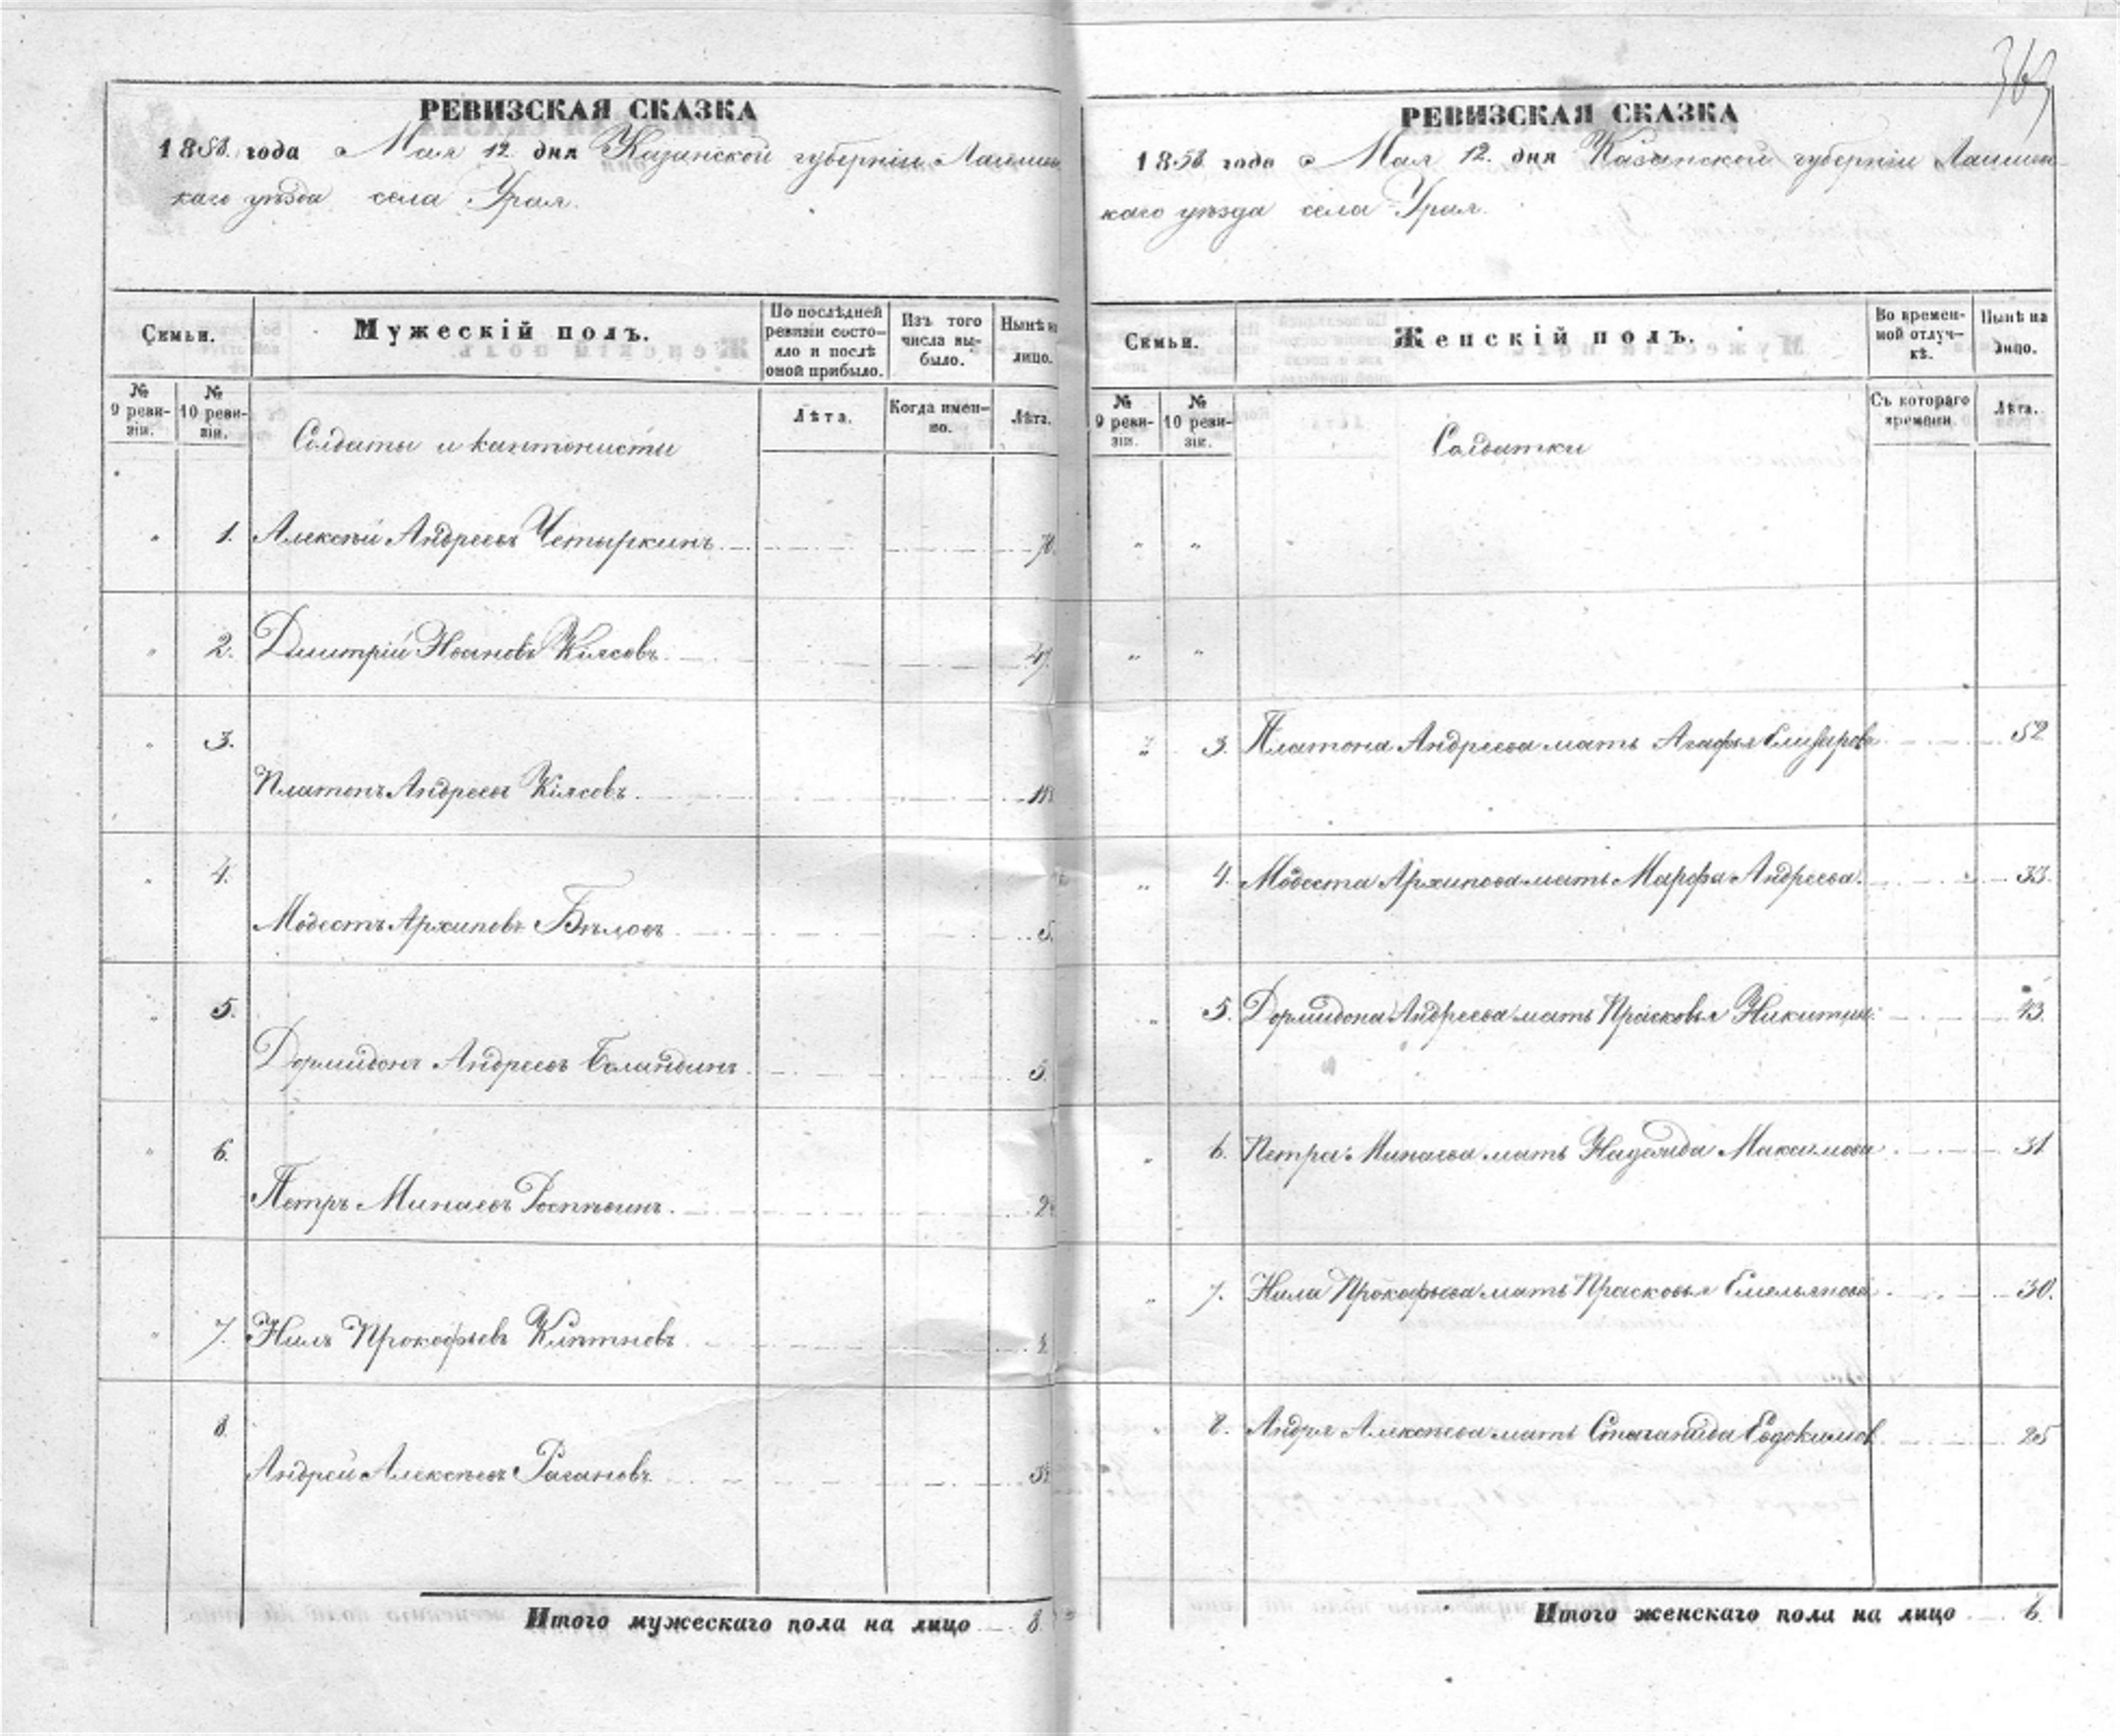 369
РЕВИЗСКАЯ СКАЗКА
1858. года Мая 12. дня Казанской губерніи Лаишев
каго уѣзда села Урая.
Семьи.
Мужескій полъ.
По послѣдней ревизіи состояло и послѣ оной прибыло.
Изъ того числа выбыло.
Нынѣ на лицо.
№ 9 ревизіи.
№ 10 ревизіи.
Лѣта.
Когда именно.
Лѣта.
Солдаты и кантонисты
1. Алексѣй Андреевъ Четыркинъ 70.
2. Дмитрій Ивановъ Кіясовъ 47.
3.
Платонъ Андреевъ Кіясовъ 18
4.
Модестъ Архиповъ Бѣловъ 5.
5.
Дормидонъ Андреевъ Баландинъ 5.
6.
Петръ Минаевъ 2
7. Нилъ Прокофьевъ
8.
Андрей Алексѣевъ
Итого мужескаго пола на лицо 8.
РЕВИЗСКАЯ СКАЗКА
1858 года Мая 12. дня Казанской губерніи Лаишев
каго уѣзда села Урая.
Семьи.
Женскій полъ.
Во временной отлучкѣ.
Нынѣ на лицо.
№ 9 ревизіи.
№ 10 ревизіи.
Съ котораго времени.
Лѣта.
Солдатки
3. Платона Андреева мать Агафья Елизарова 52
4. Модеста Архипова мать Марфа Андреева. 33.
5. Дормидона Андреева мать Прасковья Никитина 43.
6. Петра Минаева мать Надежда Максимова 31
7. Нила Прокофьева мать Прасковья Емельянова 30.
8. Андрея Алексѣева мать Степанида Евдокимов 25
Итого женскаго пола на лицо 6.